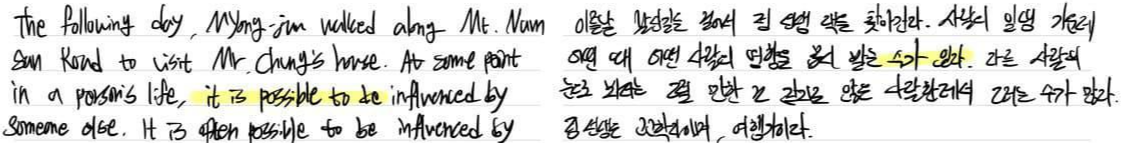 The following day, Myong-jun walked along Mt. Nam
San Road to visit Mr. Chung's house. At some point
in a person's life, it is possible to be influenced by
someone else. It is often possible to be influenced by
이튿날 남산길을 걸어서 정 선생 댁을 찾아간다. 사람이 일생 가운데
어떤 때 어떤 사람의 영향을 받는 수가 있다. 다른 사람의
눈으로 보면 그럴 만한 것 같지도 않은 사람한테서 그러는 수가 많다.
정 선생은 고고학자이며, 여행가이다.